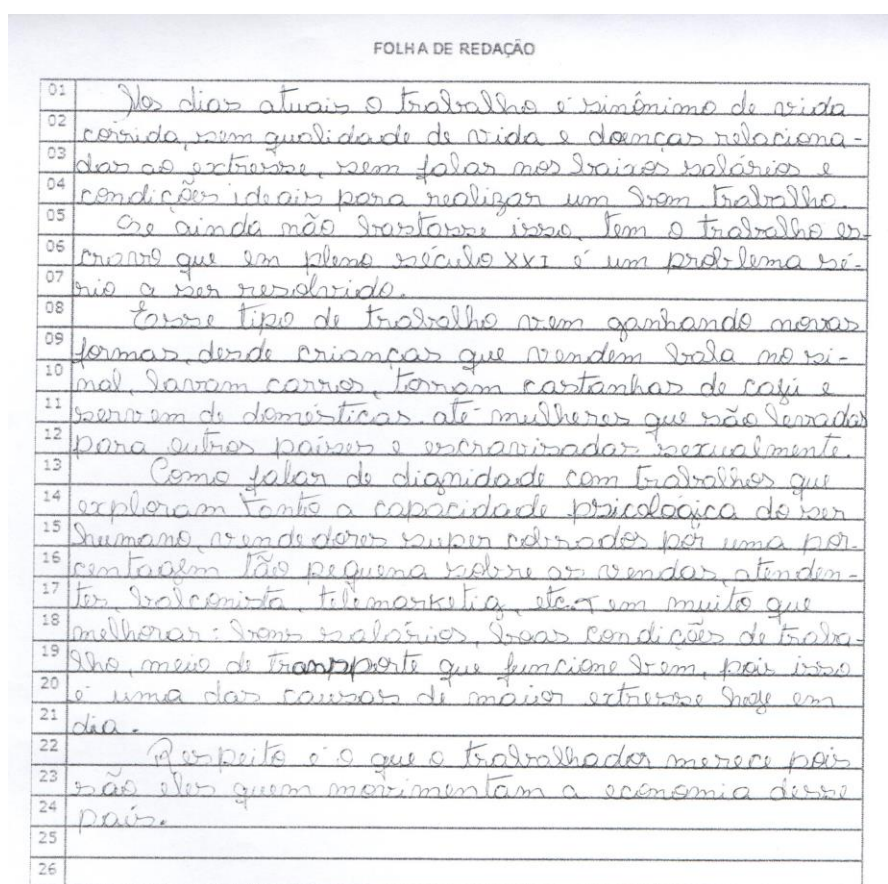 FOLHA DE REDAÇÃO
01 Nos dias atuais o trabalho é sinônimo de vida
02 corrida, sem qualidade de vida e doenças relaciona-
03 das ao extresse, sem falar nos baixos salários e
04 condições ideais para realizar um bom trabalho.
05 Se ainda não bastasse isso, tem o trabalho es-
06 cravo que em pleno século XXI é um problema sé-
07 rio a ser resolvido.
08 Esse tipo de trabalho vem ganhando novas
09 formas, desde crianças que vendem bala no si-
10 nal, lavam carros, torram castanhas de cajú e
11 servem de domésticas até mulheres que são levadas
12 para outros países e escravisadas sexualmente.
13 Como falar de dignidade com trabalhos que
14 exploram tanto a capacidade psicológica do ser
15 humano, vendedores super cobrados por uma por-
16 centagem tão pequena sobre as vendas, atenden-
17 tes, balconista, telemarketig, etc. Tem muito que
18 melhorar: bons salários, boas condições de traba-
19 lho, meio de transporte que funcione bem, pois isso
20 é uma das causas de maior extresse hoje em
21 dia.
22 Respeito é o que o trabalhador merece pois
23 são eles quem movimentam a economia desse
24 país.
25
26